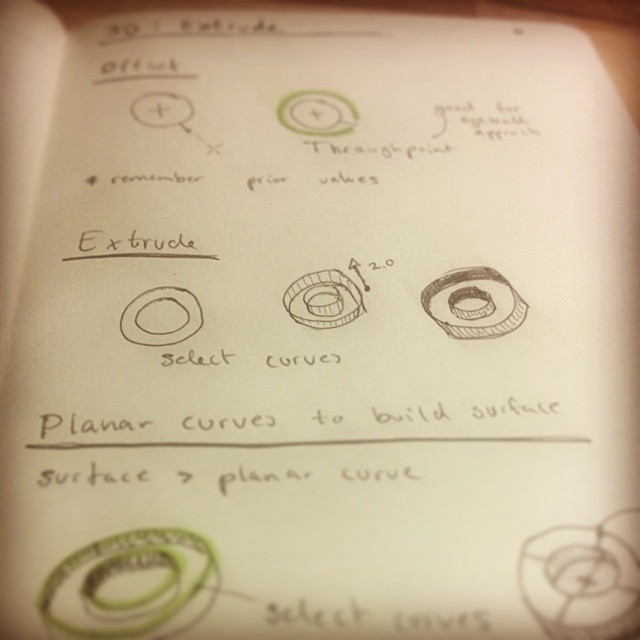 3D : Extrude
Offset
good for
eyeball
approach
Throughpoint
* remember prior values
Extrude
2.0
select curves
Planar curves to build surface
surface > planar curve
select curves